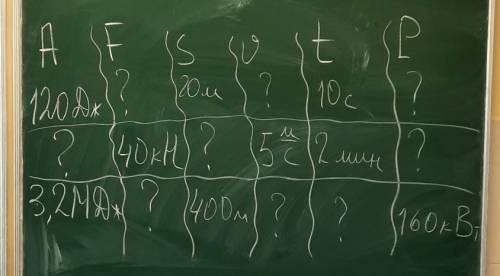 A F S υ t P
120Дж ? 20м ? 10с ?
? 40кН ? 5 м/с 2 мин ?
3,2МДж ? 400м ? ? 160кВт